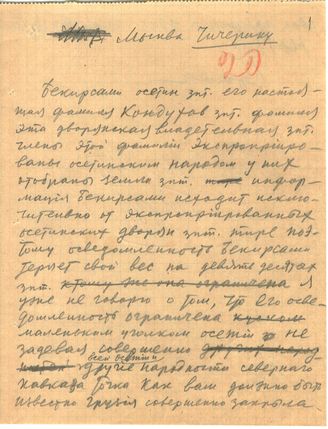 1
Москва Чичерину
Бекирсами осетин зпт. его настоя-
щая фамилия Кондухов зпт. фамилия
эта дворянская владетельная зпт.
члены этой фамилии экспроприиро-
ваны осетинским народом у них
отобраны земли зпт. инфор-
мація Бекирсами исходит исклю-
чительно от экспроприированных
осетинских дворян зпт. тире поэ-
тому осведомленность Бекирсами
теряет свой вес на девять десятых
зпт. к тому же она ограничена я
уже не говорю о том, что его осве-
домленность ограничена
маленьким уголком осетіи не
задевая совершенно
всей осетии
другие народности северного
кавказа точка Как вам должно быть
известно грузія совершенно закрыла